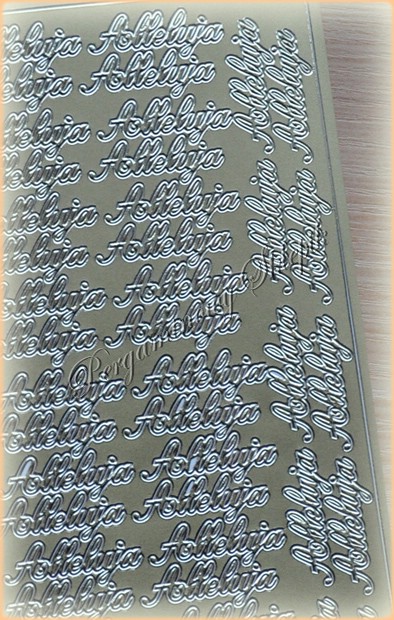 lleluja Alleluja
lleluja Alleluja
lleluja Alleluja
lleluja Alleluja
lleluja Alleluja
lleluja Alleluja
lleluja Alleluja
lleluja Alleluja
Alleluja Alleluja
Alleluja Alleluja
Alleluja Alleluja
Alleluja Alleluja
Alleluja Alleluja
Alleluja Alleluja
Alleluja
Alleluja
Alleluja
Alleluja
Alleluja
Alleluja
Alleluja
Alleluja
Pergaminowy